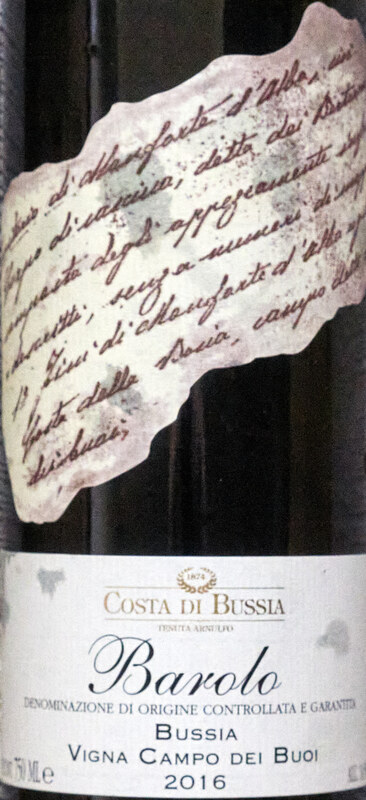 di Monforte d'Alba,
corpo di cascina, detta dei
degli appezzamenti
senza numeri di
di Monforte d'Alba
Costa della Bosia, campo
dei buoi,
1874
COSTA DI BUSSIA
TENUTA ARNULFO
Barolo
DENOMINAZIONE DI ORIGINE CONTROLLATA E GARANTITA
BUSSIA
750 ML e VIGNA CAMPO DEI BUOI
2016